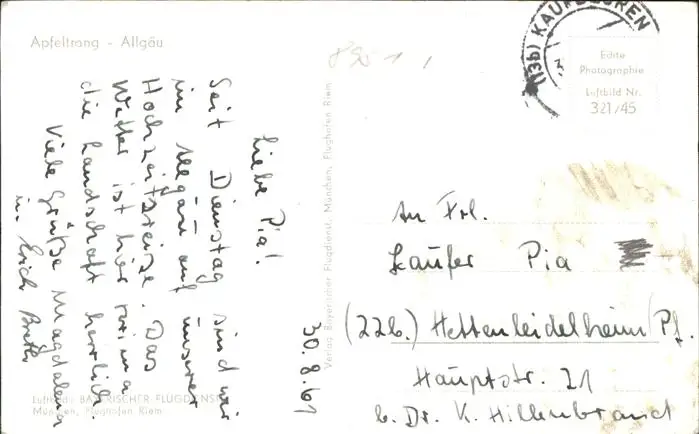 Apfeltrang - Allgäu
Liebe Pia!
Seit Dienstag sind wir
im Allgäu auf unserer
Hochzeitsreise. Das
Wetter ist hier prima
die Landschaft herrlich.
Viele Grüße Magdalena
u. Erich
30.8.61
Luftbild: BAYERISCHER FLUGDIENST
München, Flughafen Riem
Verlag Bayerischer Flugdienst, München, Flughafen Riem
(13b) KAUFBEUREN
Echte
Photographie
Luftbild Nr.
321/45
An Frl.
Laufer Pia
(22b.) Hettenleidelheim/Pf.
Hauptstr. 21
b. Dr. K. Hillenbrand